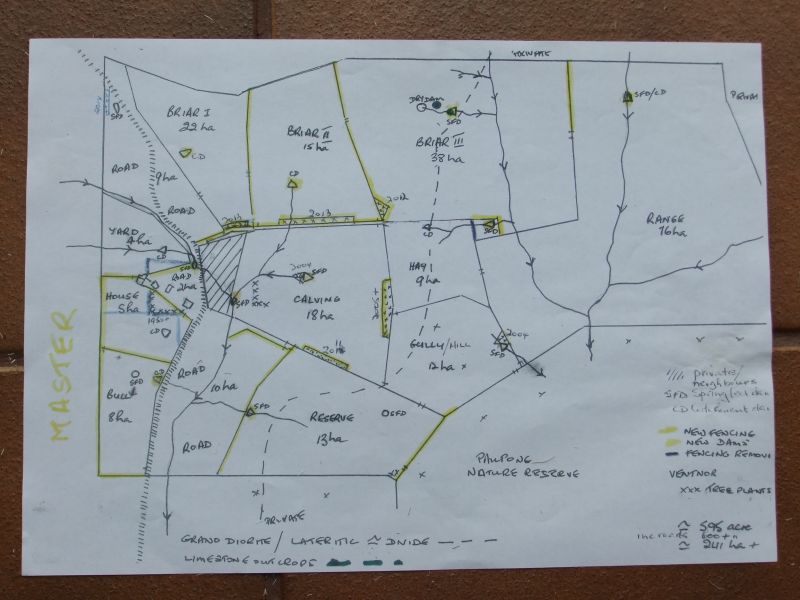 PRIVATE
BRIAR I
22 ha
CD
SFD
BRIAR II
15 ha
CD
DRY DAM
SFD
BRIAR III
38 ha
SFD/CD
ROAD
9ha
ROAD
2012
2013
2013
YARD
4ha
CD
SFD
CD
SFD
RANGE
76ha
ROAD
2ha
HOUSE
5ha
SFD
XXX
2004
SFD
CALVING
18ha
HAY
9ha
2005+
CD
2004
SFD
GULLY/HILL
12ha
MASTER
ROAD
10ha
SFD
BULL
8ha
ROAD
SFD
RESERVE
13ha
SFD
NATURE RESERVE
PRIVATE
private/
neighbours
SFD Spring fed dam
CD Catchment dam
NEW FENCING
NEW DAMS
FENCING REMOVED
VENTNOR
XXX TREE PLANTS
GRANO DIORITE/ LATERITIC ≈ DIVIDE
LIMESTONE OUTCROPS
≈ 595 acre
≈ 241 ha +